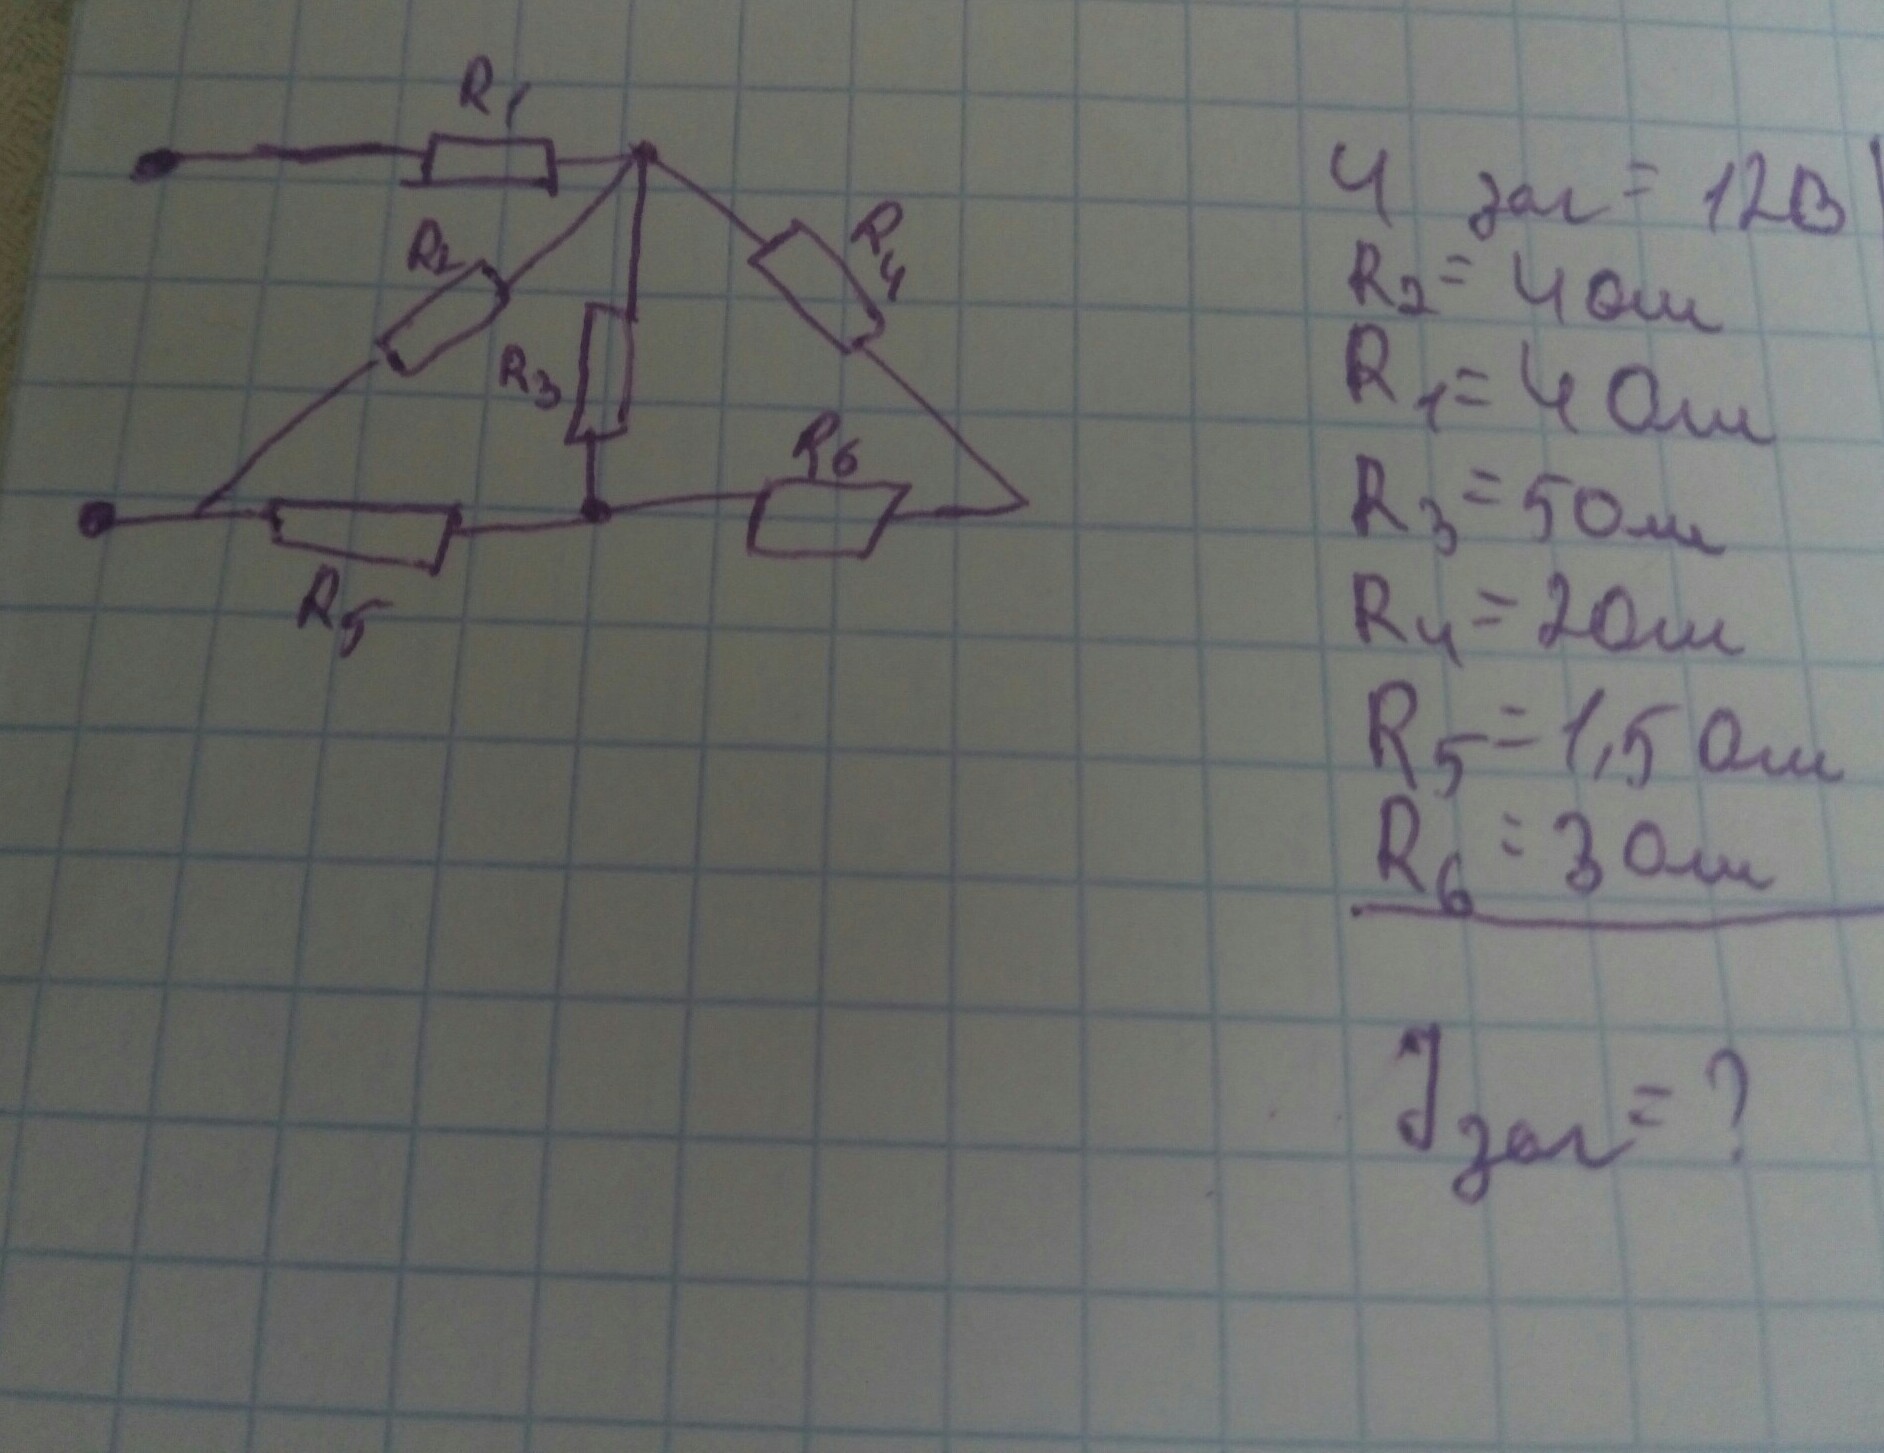 R1
R2
R3
R4
R6
R5
U заг = 12В
R2 = 4 Ом
R1 = 4 Ом
R3 = 5 Ом
R4 = 2 Ом
R5 = 1,5 Ом
R6 = 3 Ом
Iзаг = ?